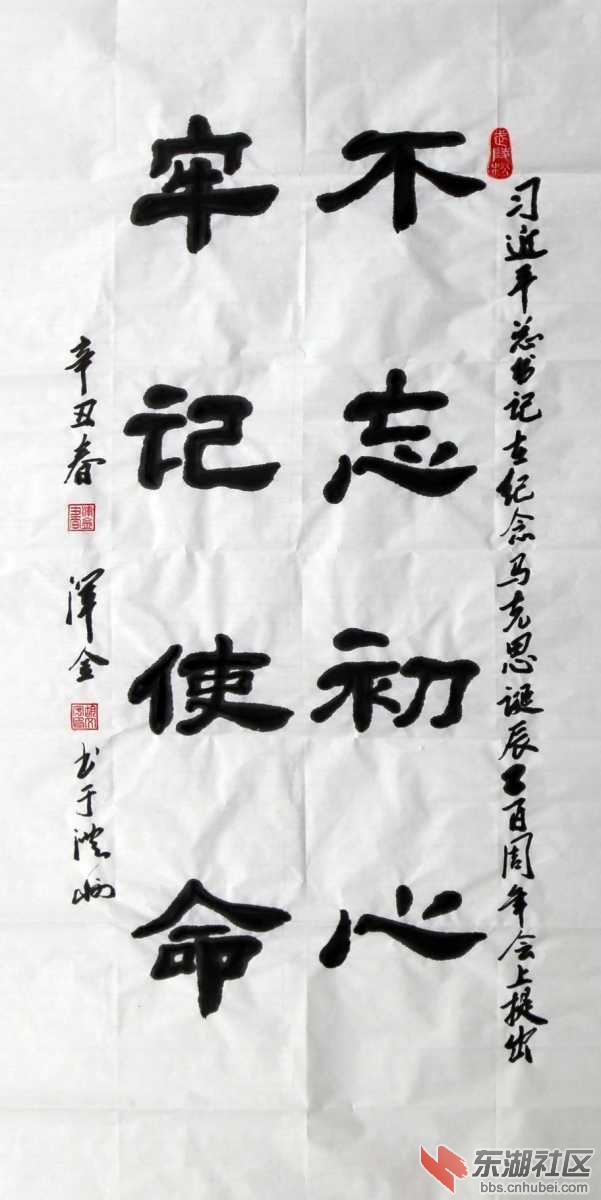 习近平总书记在纪念马克思诞辰二百周年会上提出
不忘初心
牢记使命
辛丑春 渾金 书于
东湖社区
bbs.cnhubei.com